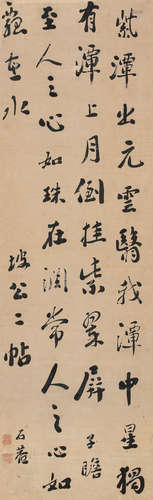 紫潭出元雲翳我潭中星獨
有潭上月倒挂紫翠屏 子瞻
至人之心如珠在淵常人之心如
瓢在水 坡公二帖 石菴